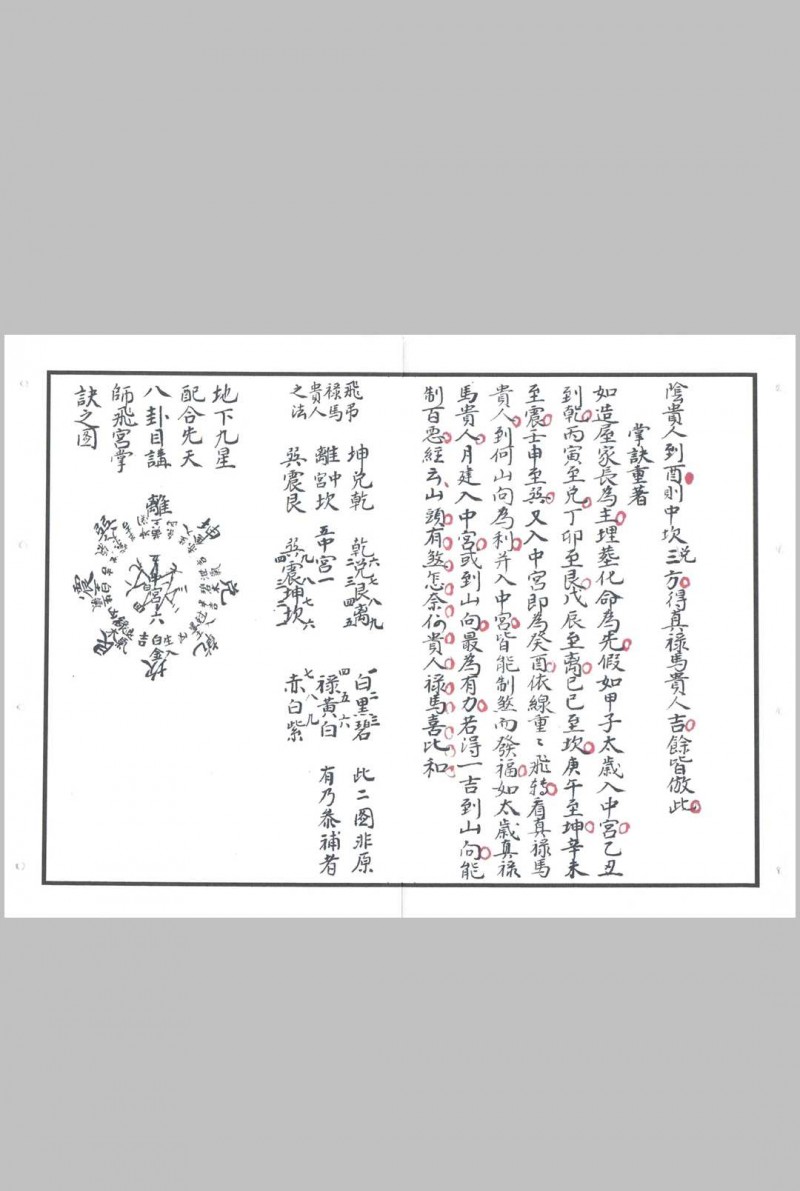 陰貴人到酉則中坎兌三方得真禄馬貴人吉餘皆倣此
掌訣重著
如造屋家長為主埋塟化命為先假如甲子太歲入中宮乙丑
到乾丙寅至兌丁卯至艮戊辰至离己巳至坎庚午至坤辛未
至震壬申至巽又入中宮即為癸酉依線重〻飛轉看真禄馬
貴人到何山向為利并入中宮皆能制煞而發福如太歲真禄
馬貴人月建入中宮或到山向最為有力若得一吉到山向能
制百惡經云山頭有煞怎奈何貴人禄馬喜比和
飛吊
禄馬
貴人
之法
坤兌乾
離中宮坎
巽震艮
六七八九
乾兌艮离
五中宮一
九八七六
巽震坤坎
一二三
白黑碧
四五六
禄黃白
七八九
赤白紫
此二圖非原
有乃恭補者
地下九星
配合先天
八卦目講
師飛宮掌
訣之圖
離
坤
兌
坎
震
巽